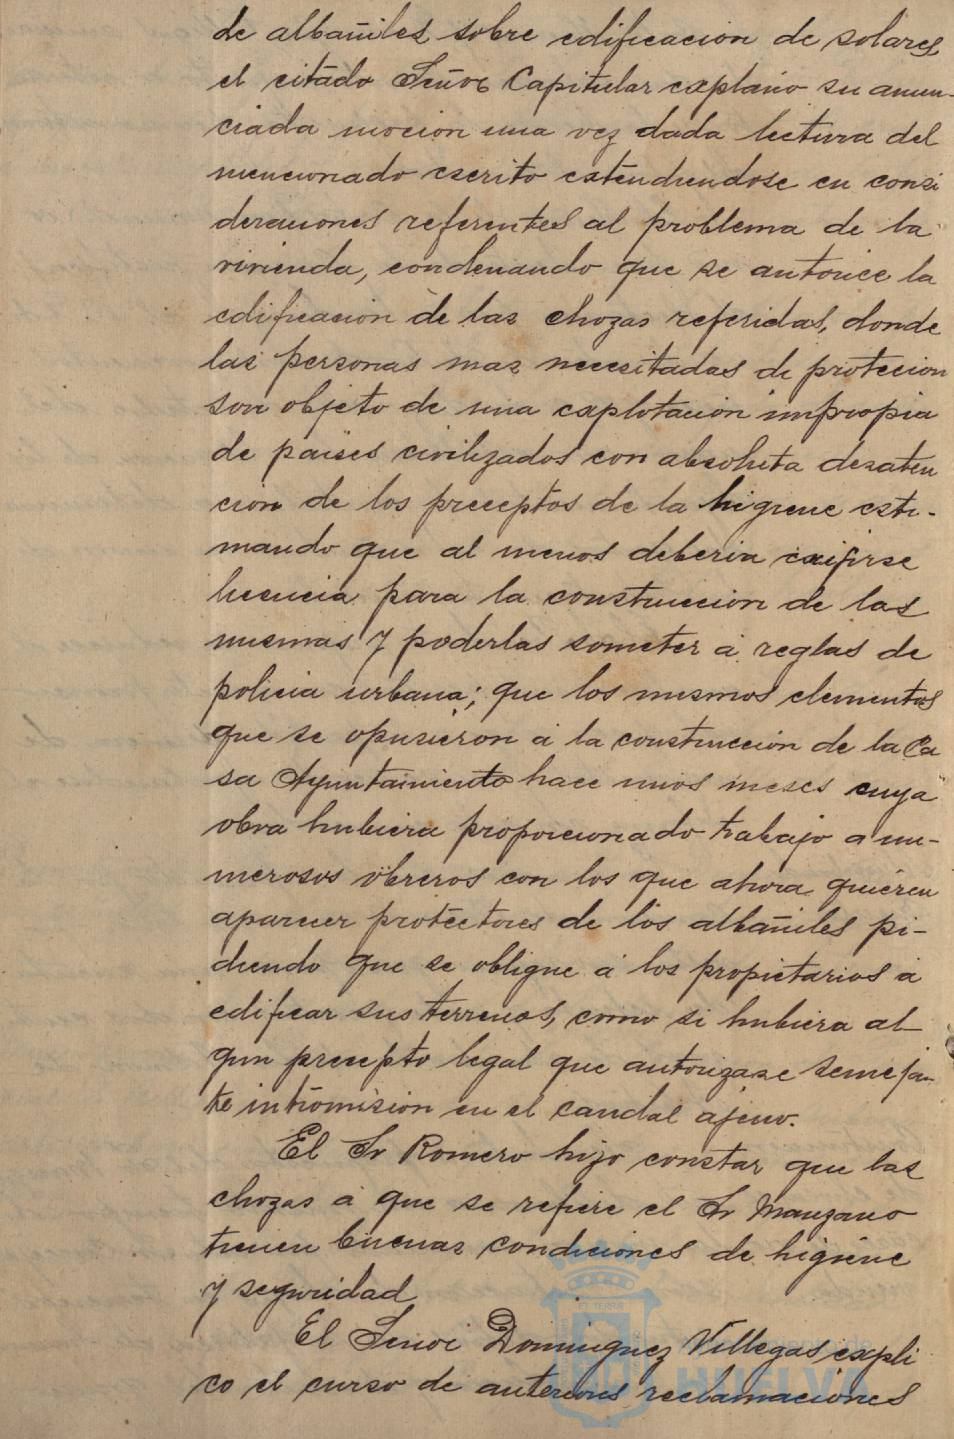 de albañiles sobre edificacion de solares,
el citado Señor Capitular explano su anun-
ciada mocion una vez dada lectura del
mencionado escrito extendiendose en consi
deraciones referentes al problema de la
vivienda, condenando que se autorice la
edificacion de las chozas referidas, donde
las personas mas necesitadas de protecion
son objeto de una explotacion impropia
de paises civilizados con absoluta desaten
cion de los preceptos de la higiene esti-
mando que al menos deberia exijirse
licencia para la construccion de las
mismas y poderlas someter á reglas de
policia urbana; que los mismos elementos
que se opusieron á la construcción de la Ca
sa Ayuntamiento hace unos meses cuya
obra hubiera proporcionado trabajo a nu-
merosos obreros son los que ahora quieren
aparecer protectores de los albañiles pi-
diendo que se obligue á los propietarios á
edificar sus terrenos, como si hubiera al
gun precepto legal que autorizase semejan
te intromision en el caudal ajeno.
El Sr Romero hizo constar que las
chozas á que se refiere el Sr Manzano
tienen buenas condiciones de higiene
y seguridad
El Señor Dominguez Villegas expli
co el curso de anteriores reclamaciones
HUELVA